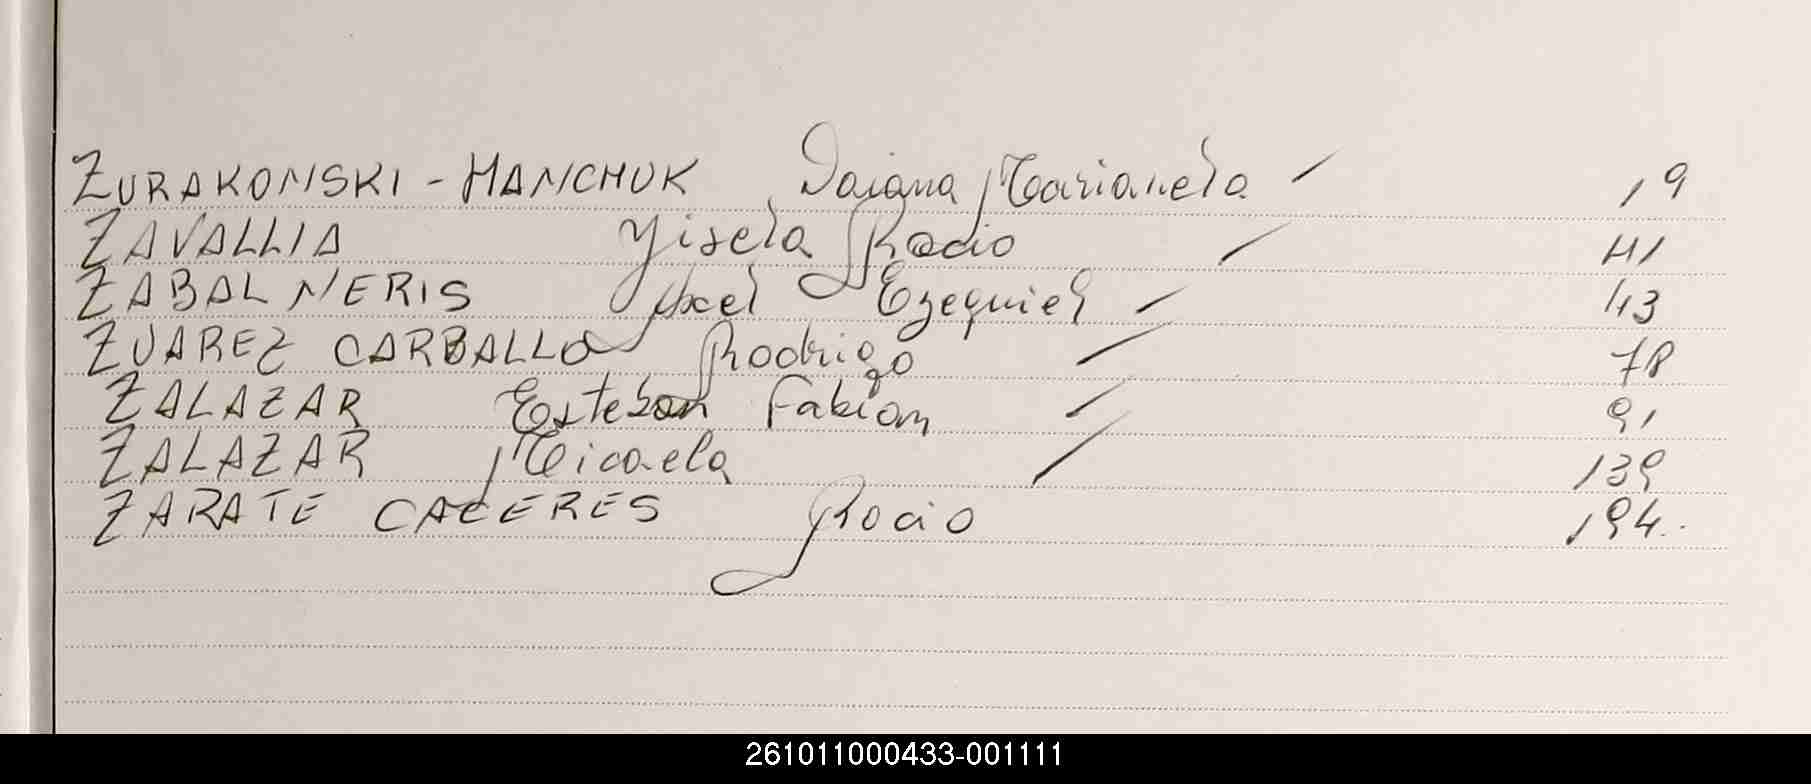 ZURAKONSKI - HANCHUK Daiana Marianela 19
ZAVALLIA Yisela Rocio 41
ZABAL NERIS Axel Ezequiel 43
ZUAREZ CARBALLO Rodrigo 78
ZALAZAR Esteban Fabian 91
ZALAZAR Micaela 139
ZARATE CACERES Rocio 194.
261011000433-001111